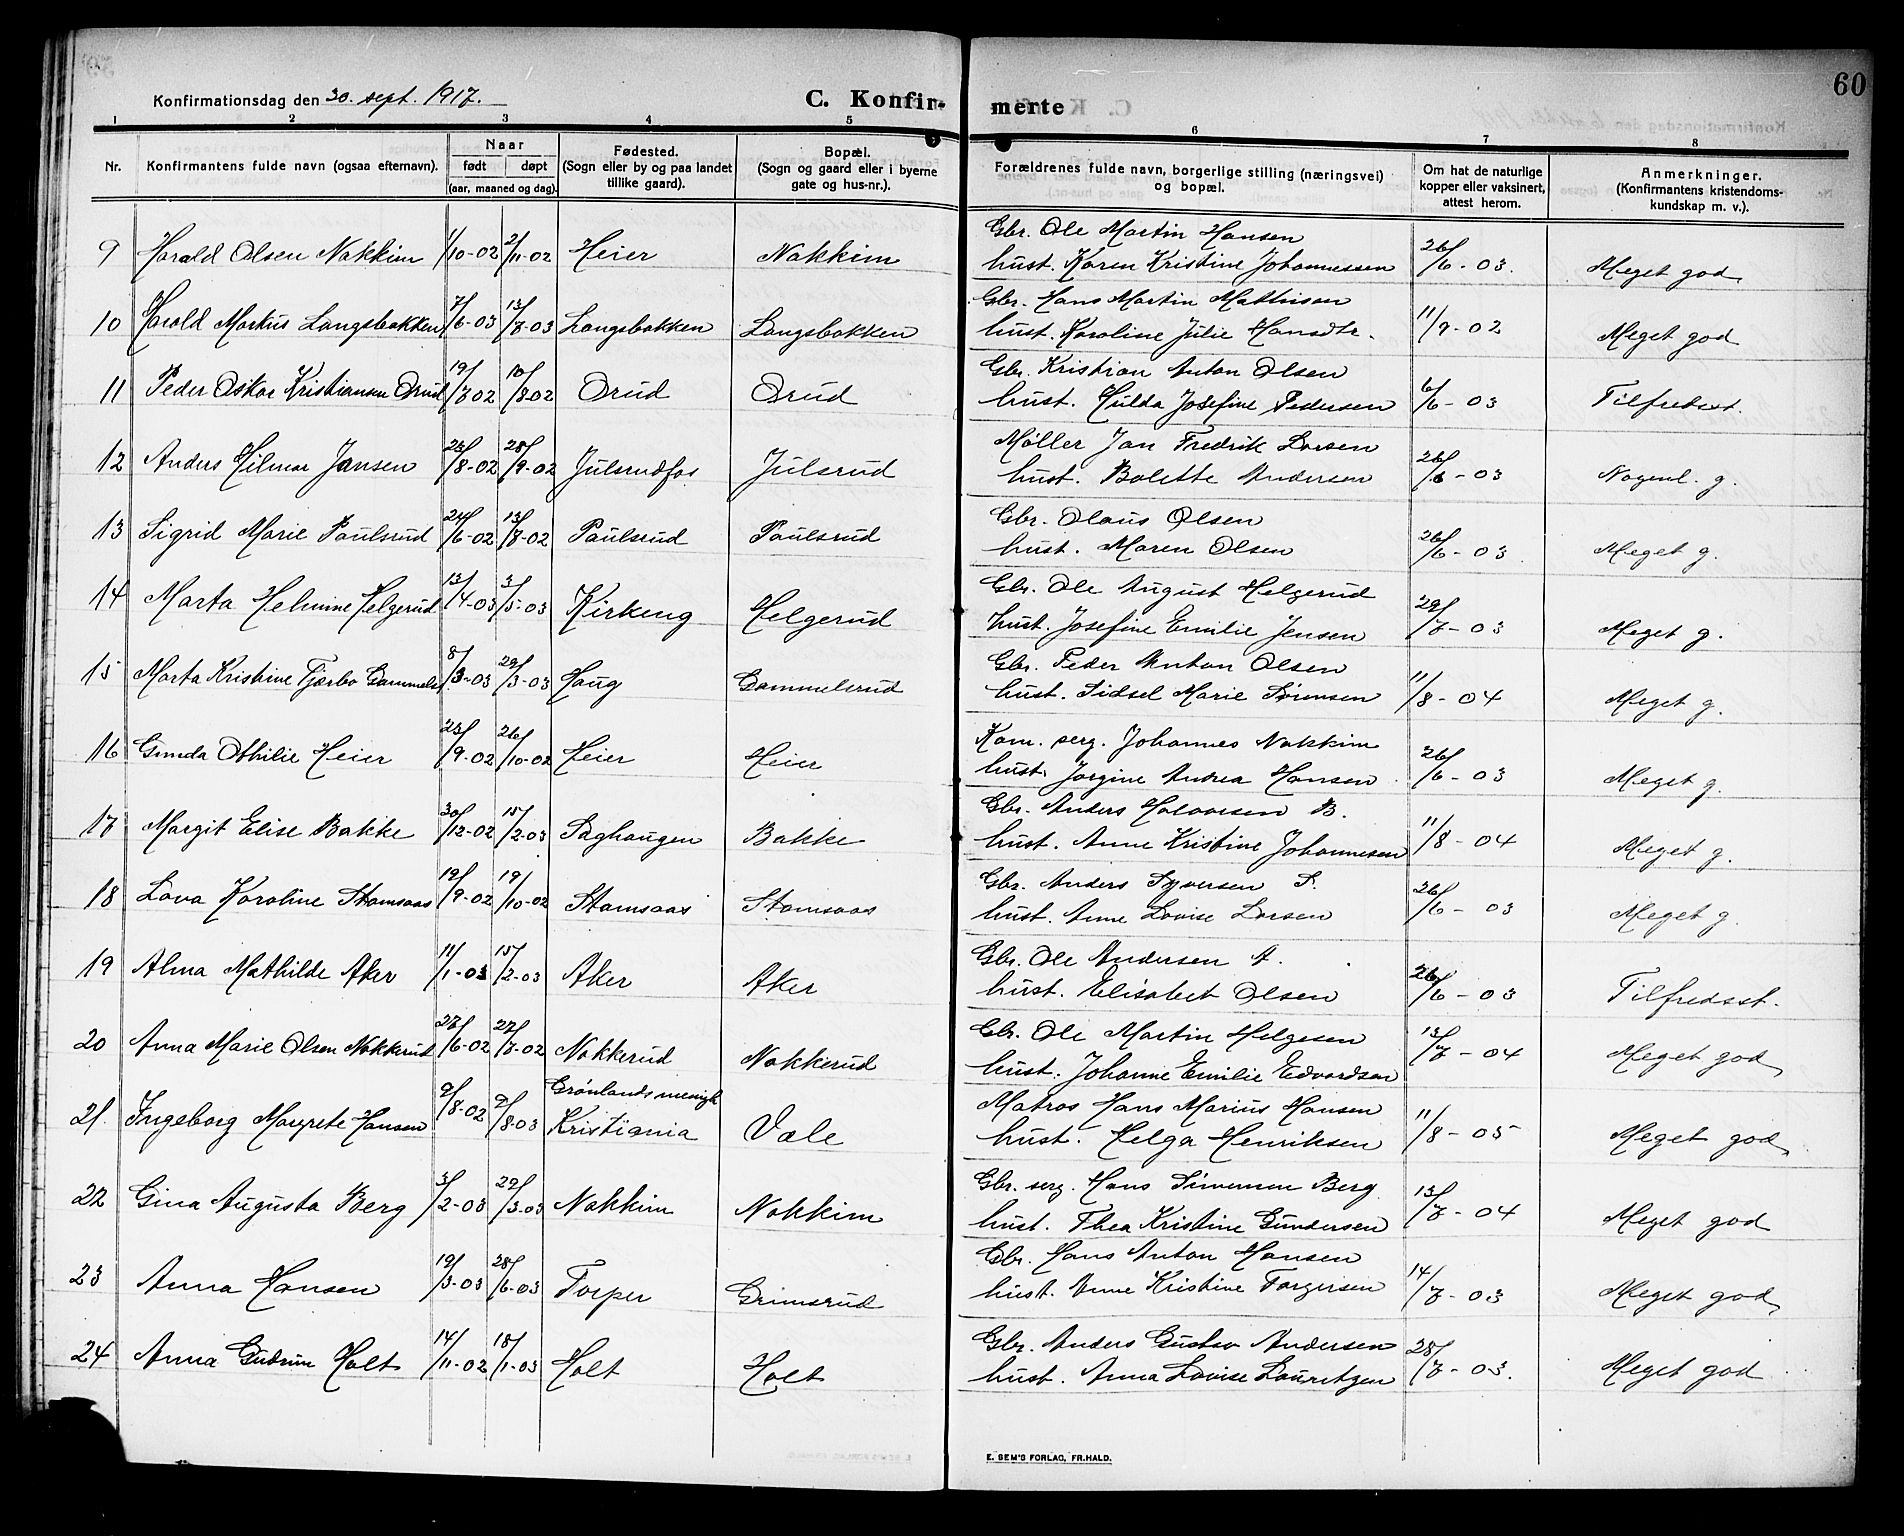 60
Konfirmationsdag den 30. sept. 1917.
C. Konfir-merte
1 2 3 4 5 6 7 8
Nr. Konfirmantens fulde navn (ogsaa efternavn). Naar født døpt (aar, maaned og dag). Fødested. (Sogn eller by og paa landet tillike gaard). Bopæl. (Sogn og gaard eller i byerne gate og hus-nr.). Forældrenes fulde navn, borgerlige stilling (næringsvei) og bopæl. Om hat de naturlige kopper eller vaksinert, attest herom. Anmerkninger. (Konfirmantens kristendoms-kundskap m. v.).
9 Harald Olsen Nakkim 1/10-02 2/11-02 Heier Nakkim Gbr. Ole Martin Hansen
hust. Karen Kristine Johannessen 26/6-03. Meget god
10 Harald Markus Langsbakken 7/6-03 13/8-03 Langsbakken Langsbakken Gbr. Hans Martin Mathisen
hust. Karoline Julie Hansdtr. 11/9-02 Meget god
11 Peder Oskar Kristiansen Orud 19/7 02 10/8 02 Orud Orud Gbr. Kristian Anton Olsen
hust. Hulda Josefine Pedersen 6/6-03 Tilfredsst.
12 Anders Hilmar Jansen 23/8-02 28/9-02 Julsrudfos Julsrud Møller Jan Fredrik Larsen
hust. Bolette Andersen 26/6-03 Nogenl. g.
13 Sigrid Marie Paulsrud 24/6-02 13/8-02 Paulsrud Paulsrud Gbr. Olaus Olsen
hust. Maren Olsen 26/6-03 Meget g.
14 Marta Helmine Helgerud 13/4-03 3/5-03 Kirkeng Helgerud Gbr. Ole August Helgerud
hust. Josefine Emilie Jensen 29/7-03 Meget g.
15 Marta Kristine Tjærbo Gammels 8/3-03 29/3-03 Haug Gammelsrud Gbr. Peder Anton Olsen
hust. Sidsel Marie Sørensen 11/8-04 Meget g.
16 Gunda Othilie Heier 23/9-02 26/10-02 Heier Heier Kom. serg. Johannes Nakkim
hust. Jørgine Andrea Hansen 26/6-03 Meget g.
17 Margit Elise Bakke 30/12-02 15/2-03 Saghaugen Bakke Gbr. Anders Halvorsen B.
hust. Anne Kristine Johannesen 11/8-04 Meget g.
18 Lova Karoline Stamsaas 19/9-02 19/10-02 Stamsaas Stamsaas Gbr. Anders Syversen S.
hust. Anne Lovise Larsen 26/6-03 Meget g.
19 Alma Mathilde Aker 11/1-03 15/2-03 Aker Aker Gbr. Ole Andersen A.
hust. Elisabet Olsen 26/6-03 Tilfredsst.
20 Anna Marie Olsen Nakkerud 27/6-02 27/7-02 Nakkerud Nakkerud Gbr. Ole Martin Helgesen
hust. Johanne Emilie Edvardsen 13/7-04 Meget god
21. Ingeborg Margrete Hansen 9/8-02 9/8-03 Grønlands menigh Kristiania Vale Matros Hans Marius Hansen
hust. Helga Henriksen 11/8-05 Meget god
22 Gina Augusta Berg 3/2-03 29/3-03 Nakkim Nakkim Gbr. serg. Hans Simensen Berg
hust. Thea Kristine Gundersen 13/7-04 Meget god
23 Anna Hansen 19/3-03 28/6-03 Torper Grimsrud Gbr. Hans Anton Hansen
hust. Anne Kristine Torgersen 14/7-03 Meget god
24 Anna Gudrun Holt 14/11-02 18/1-03 Holt Holt Gbr. Anders Gustav Andersen
hust. Anna Lovise Lauritzen 28/7-03. Meget god
E. SEM'S FORLAG, FR.HALD.